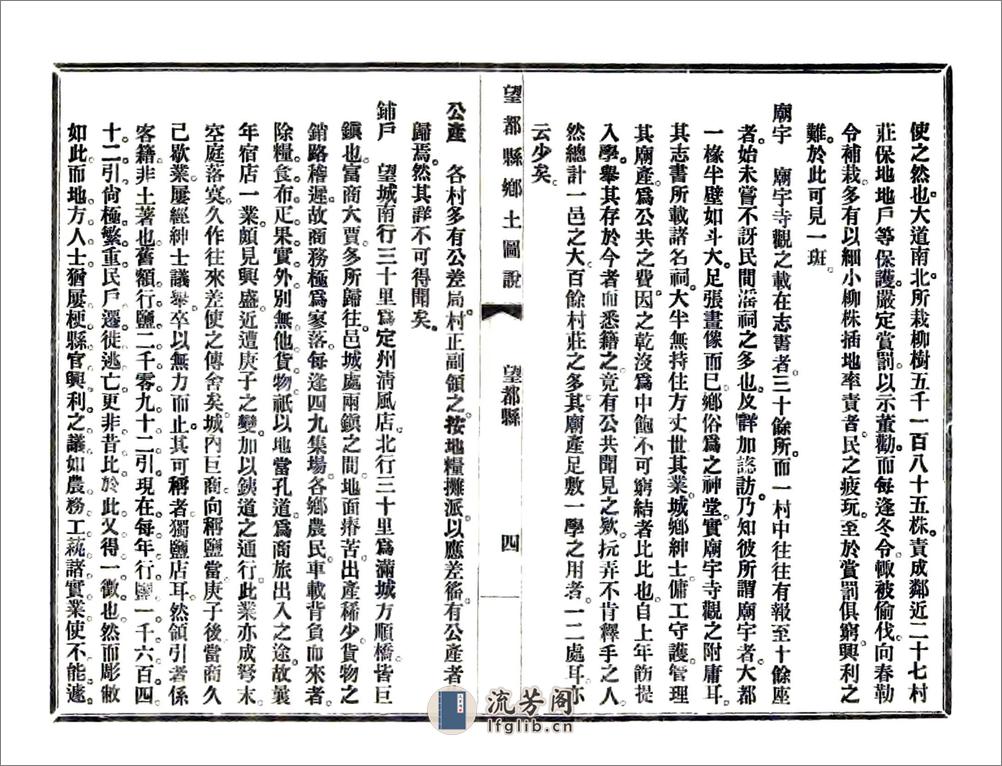 使之然也。大道南北所栽柳樹五千一百八十五株。責成鄰近二十七村
莊保地地戶等保護。嚴定賞罰以示董勸。而每逢冬令輙被偷伐。向春勒
令補栽。多有以細小柳株插地率責者。民之疲玩。至於賞罰俱窮。興利之
難。於此可見一斑。
廟宇　廟宇寺觀之載在志書者。三十餘所。而一村中往往有報至十餘座
者。始未嘗不訝民間淫祠之多也。及詳加諮訪。乃知彼所謂廟宇者。大都
一椽半壁如斗大。足張畫像而已。鄉俗爲之神堂。實廟宇寺觀之附庸耳。
其志書所載諸名祠。大半無持住方丈世其業。城鄉紳士傭工守護。管理
其廟產。爲公共之費。因之乾沒爲中飽。不可窮結者比比也。自上年飭提
入學。舉其存於今者而悉籍之。竟有公共聞見之欵。抏弄不肯釋手之人。
然總計一邑之大。百餘村莊之多。其廟產足敷一學之用者。一二處耳。亦
云少矣。
望都縣鄉土圖說
望都縣
四
公產　各村多有公差局。村正副領之。按地糧攤派。以應差徭。有公產者
歸焉。然其詳不可得聞矣。
鋪戶　望城南行三十里爲定州清風店。北行三十里爲滿城方順橋。皆巨
鎮也。富商大賈多所歸往。邑城處兩鎮之間。地面瘠苦。出產稀少。貨物之
銷路稽遲。故商務極爲寥落。每逢四九集場。各鄉農民車載背負而來者。
除糧食布疋果實外。別無他貨物。祇以地當孔道。爲商旅出入之途。故曩
年宿店一業。頗見興盛。近遭庚子之變。加以鐵道之通行。此業亦成弩末。
空庭落寞。久作往來差使之傳舍矣。城內巨商。向稱鹽當。庚子後。當商久
已歇業。屢經紳士議舉。卒以無力而止。其可稱者。獨鹽店耳。然領引者係
客籍。非土著也。舊額行鹽二千零九十二引。現在每年行鹽一千六百四
十二引。尚極繁重。民戶遷徙逃亡。更非昔比。於此又得一徵也。然而彫敝
如此。而地方人士。猶屢梗縣官興利之議。如農務工藝諸實業。使不能遽。
流芳阁
lfglib.cn